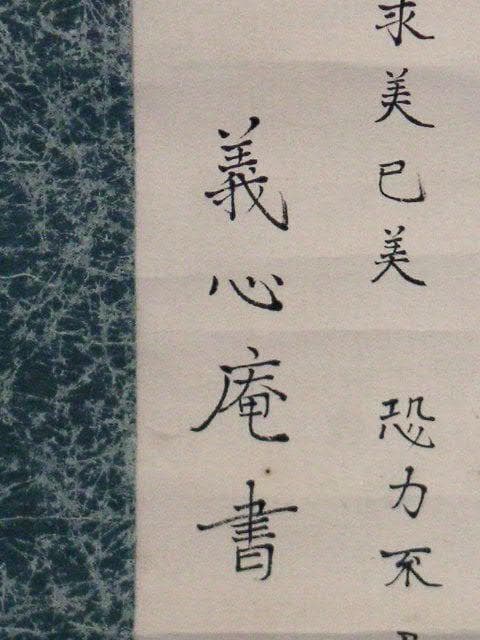 求美已美 恐力不
義心庵書